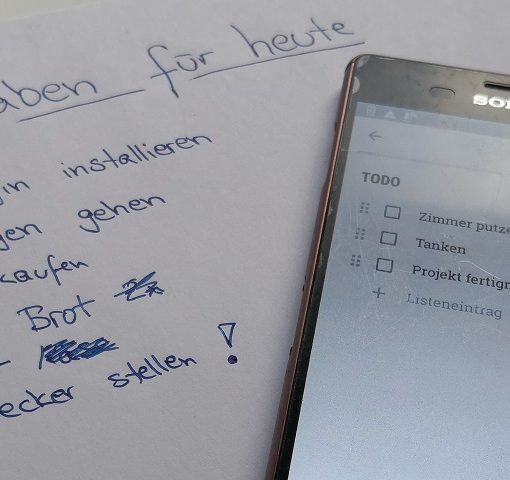 aben für heute
in installieren
gen gehen
kaufen
Brot
ecker stellen!
SON
TODO
Zimmer putze
Tanken
Projekt fertig
+ Listeneintrag